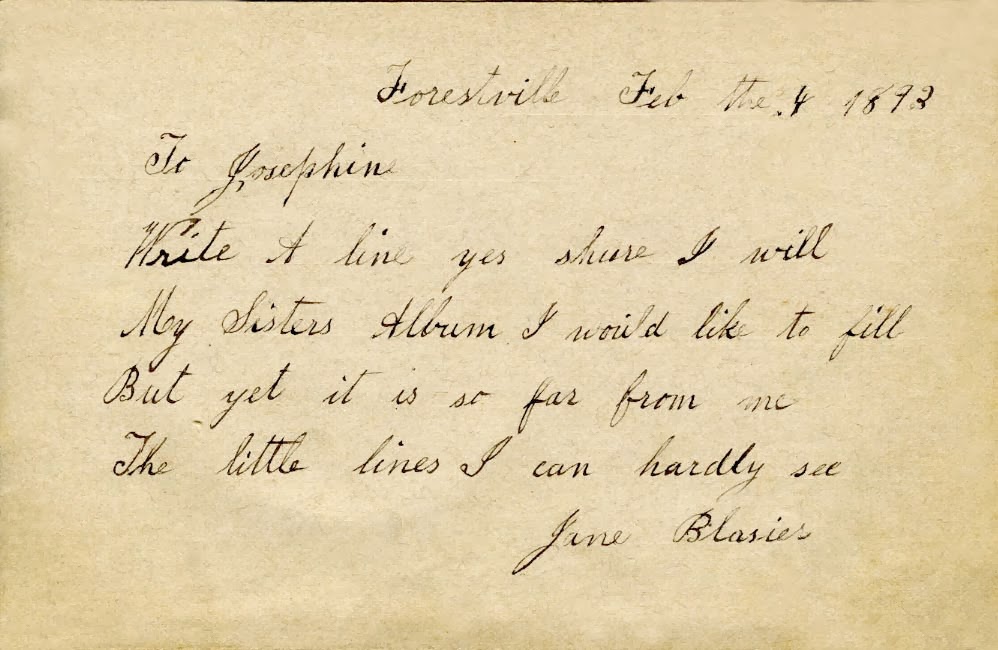 Forestville Feb the 4 1893
To Josephine
Write A line yes shure I will
My Sisters Album I would like to fill
But yet it is so far from me
The little lines I can hardly see
Jane Blasier